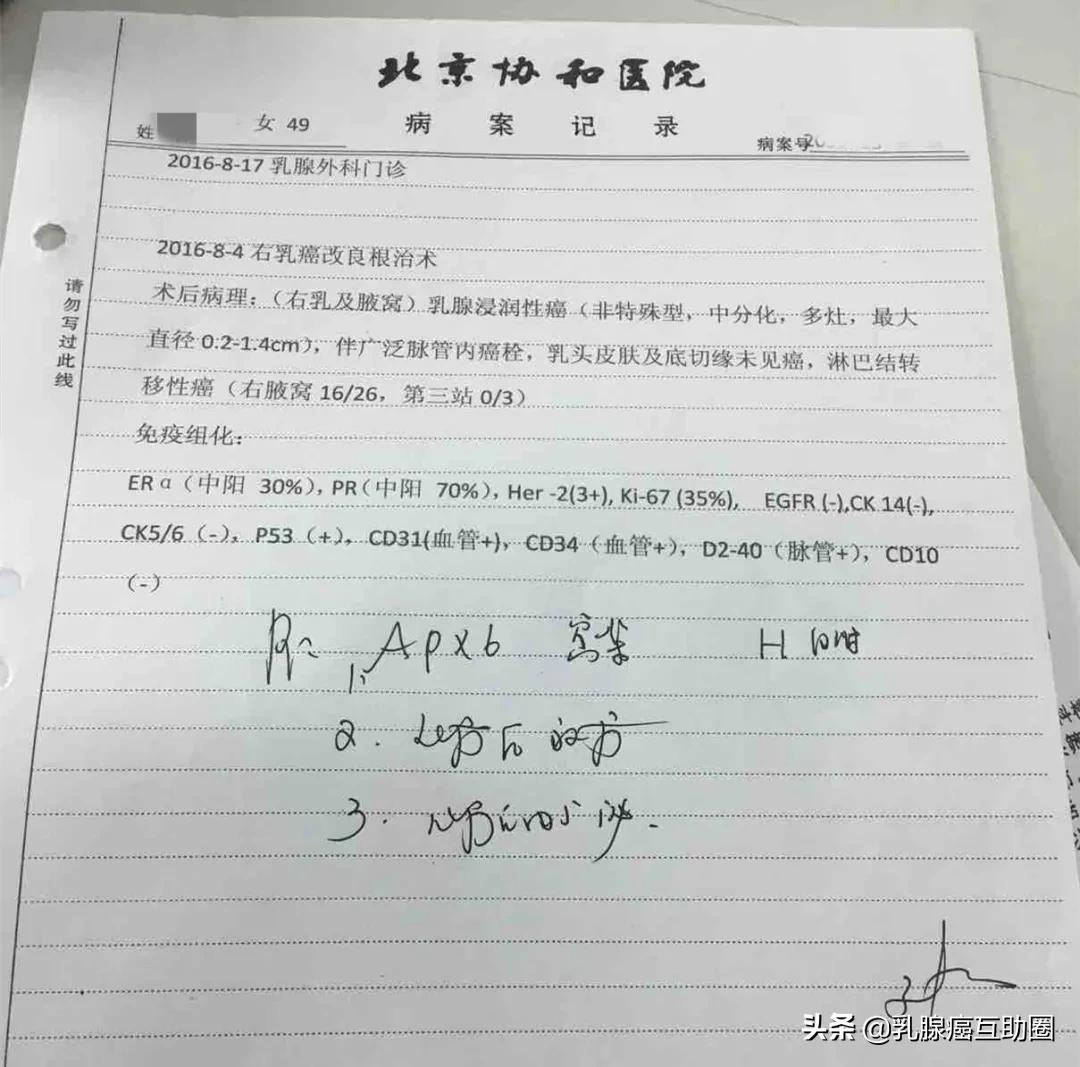 北京协和医院
病案记录
姓 女 49 病案号
2016-8-17 乳腺外科门诊
2016-8-4 右乳癌改良根治术
术后病理：（右乳及腋窝）乳腺浸润性癌（非特殊型，中分化，多灶，最大
直径 0.2-1.4cm），伴广泛脉管内癌栓，乳头皮肤及底切缘未见癌，淋巴结转
移性癌（右腋窝 16/26，第三站 0/3）
免疫组化：
ERα（中阳 30%），PR（中阳 70%），Her -2(3+), Ki-67 (35%), EGFR (-),CK 14(-),
CK5/6（-），P53（+），CD31(血管+)，CD34（血管+），D2-40（脉管+），CD10
（-）
1. AP×6 H 同时
2. 化疗后放疗
3.
请勿写过此线
头条 @乳腺癌互助圈